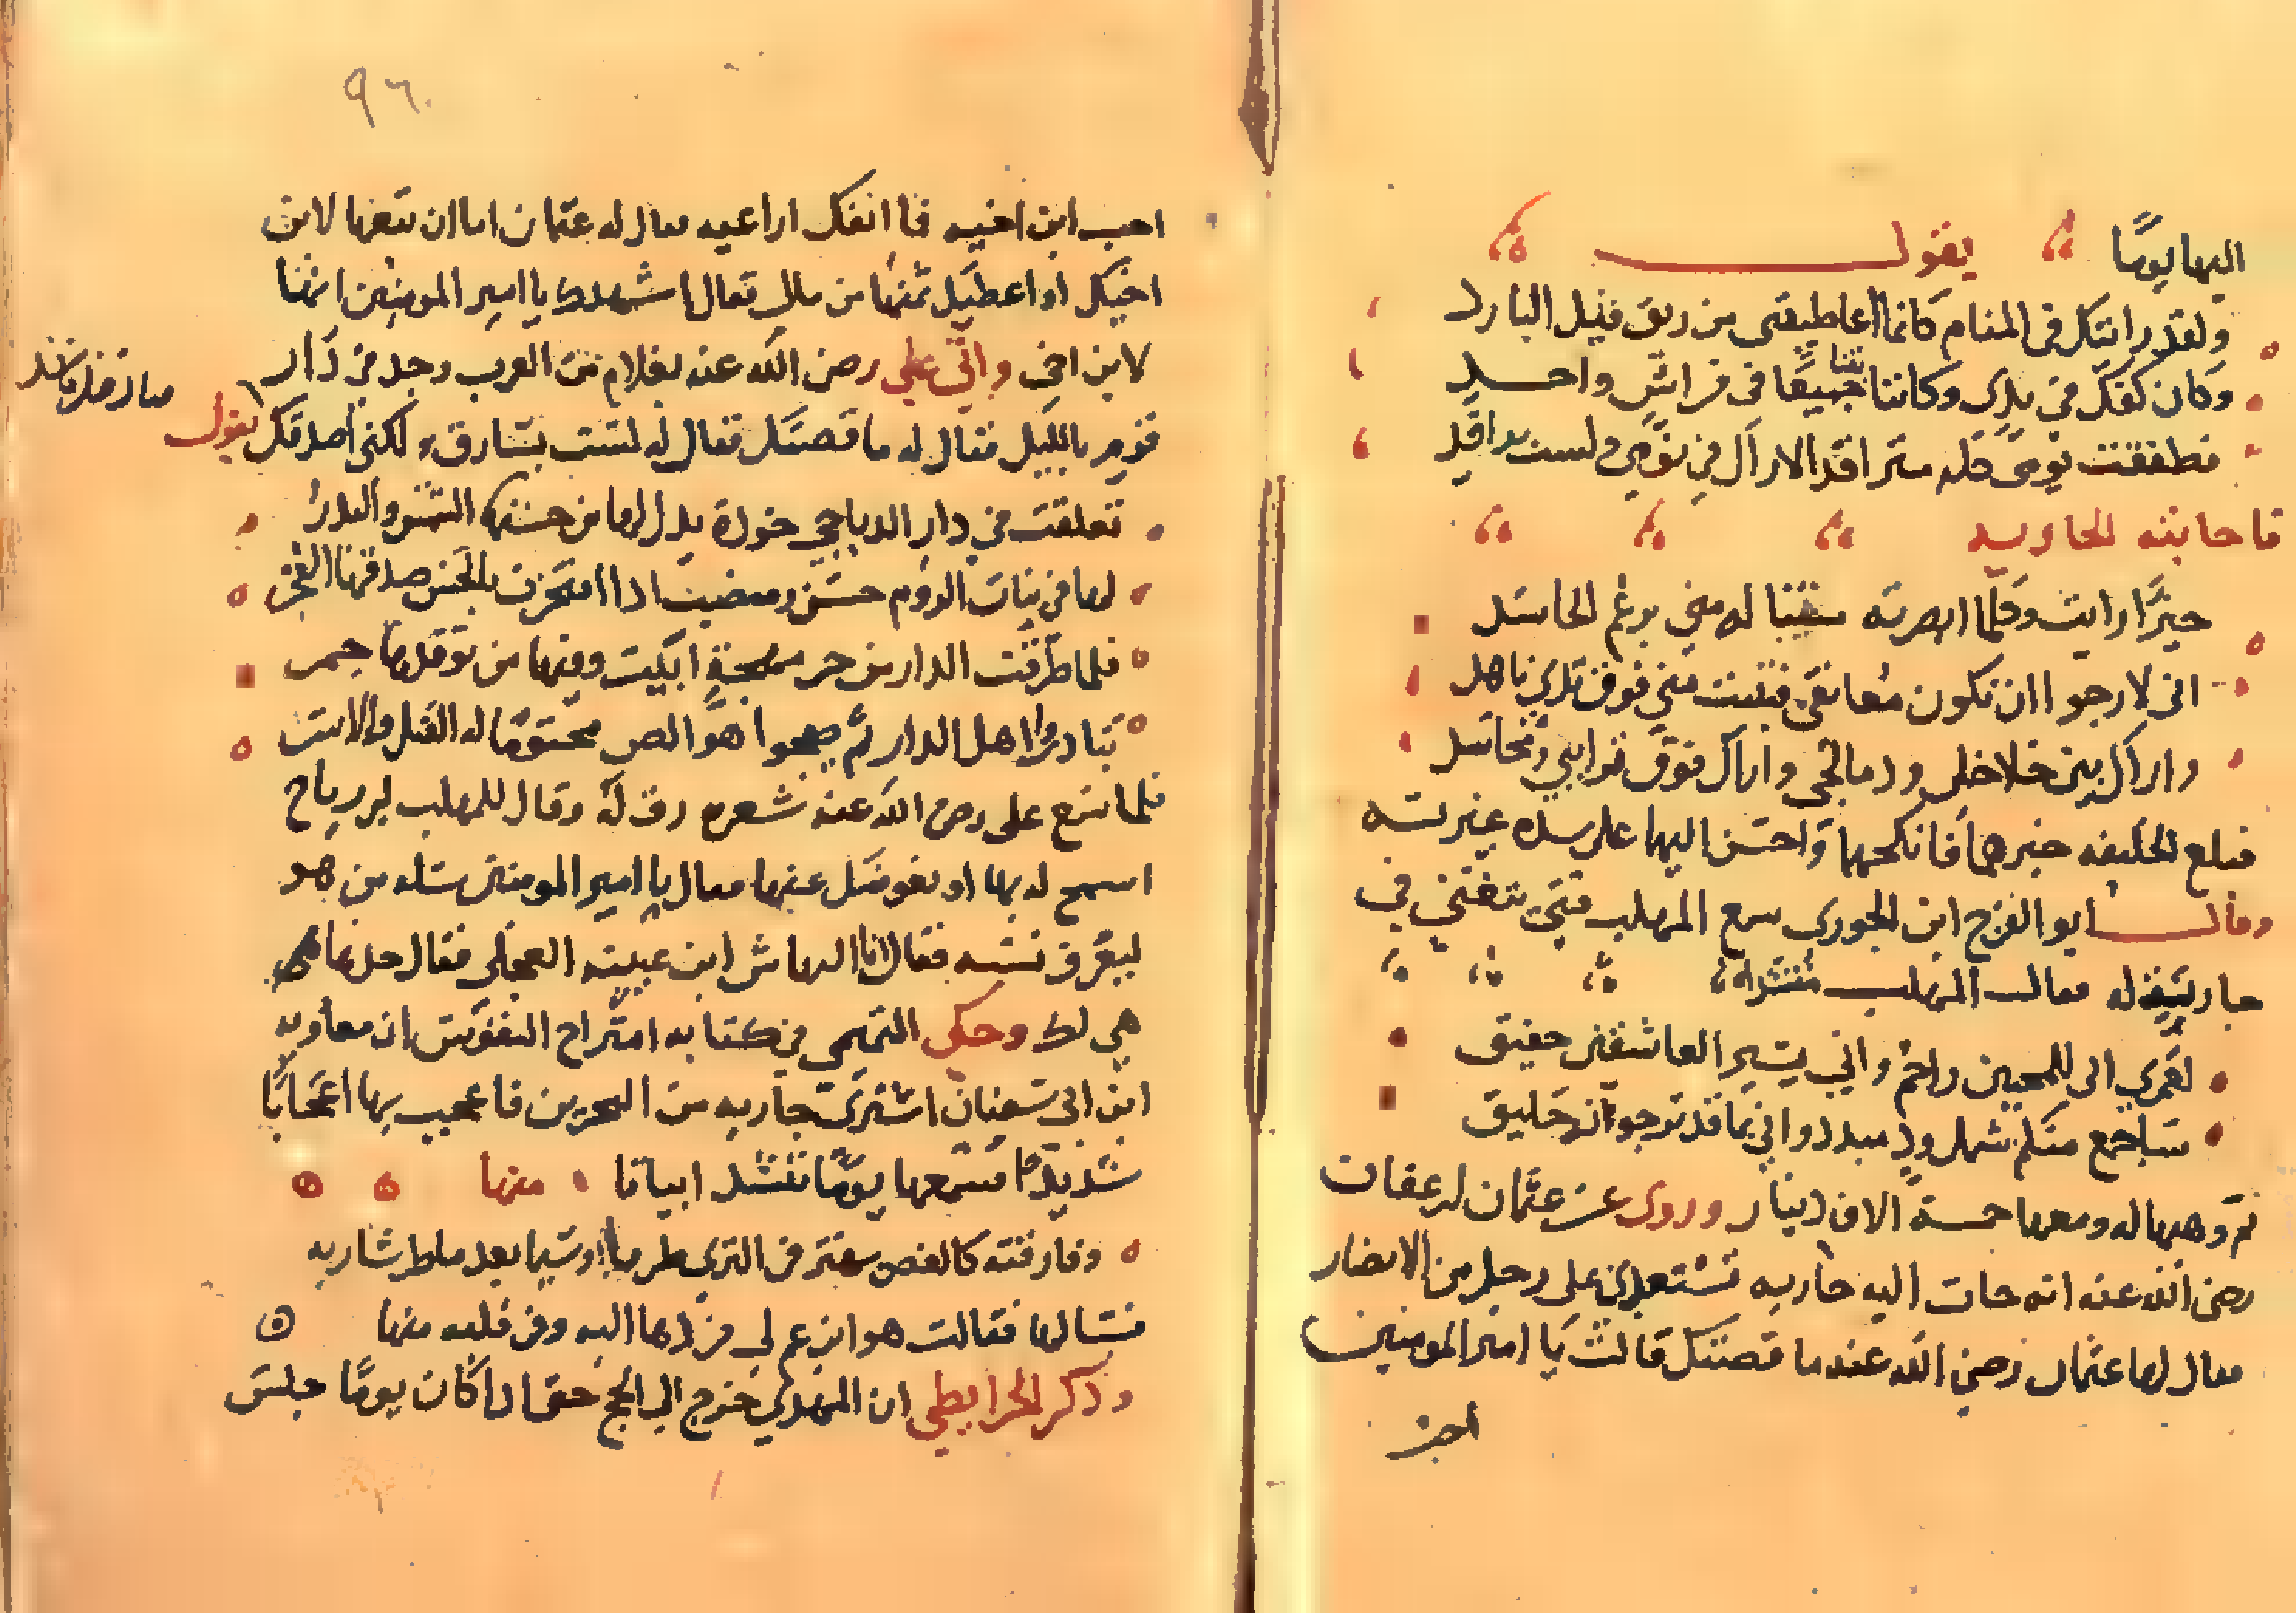 اليها يومًا يقول
ولقد رايتك في المنام كانما اعاطيتني من ريق فيك البارد
وكان كفك في يدي وكاننا بتنا جميعًا في فراش واحد
فطفقت يومي كله متراقدا لاراك في نومي ولست براقد
فاجابته الجاريه
خيرًا رايت وكلما ابصرته ستناله مني برغم الحاسد
اني لارجوا ان تكون معانقي فتبيت مني فوق ثدي ناهد
واراك بين خلاخلي ودمالجي واراك فوق ترايبي ومجاسد
فبلغ الخليفه خبرها فانكحها واحسن اليها على شدة غيرته
وقال ابو الفرج ابن الجوزي سمع المهلب فتى يتغنى في
جاريه له فقال المهلب منشدا
لعمري اني للمحبين راحم واني بستر العاشقين حقيق
ساجمع منكم شمل ود مبدد واني بما قد ترجوان خليق
ثم وهبها له ومعها خمسة الاف دينار وروي عن عثمان بن عفان
رضي الله عنه انه جات اليه جاريه تستعدي على رجل من الانصار
فقال لها عثمان رضي الله عنه ما قصتك قالت يا امير المومنين
احب
٩٦
احب ابن اخيه فما انفك اراعيه فقال له عثمان اما ان تهبها لابن
اخيك او اعطيك ثمنها من مالي فقال اشهدك يا امير المومنين انها
لابن اخي واتي علي رضي الله عنه بغلام من العرب وجد في دار
قوم بالليل فقال له ما قصتك فقال له لست بسارق ولكني اصدقك يقول
تعلقت في دار الرباحي خودة يذل لها من حسنها الشمس والبدر
لها في بنات الروم حسن ومنصب اذا افتخرت بالحسن صدقها الفخر
فلما طرقت الدار من حر مهجة ابيت وفيها من توقدها جمر
تبادر اهل الدار ثم صيحوا هو اللص محتومًا له القتل والاسر
فلما سمع علي رضي الله عنه شعره رق له وقال للمهلب بن رباح
اسمح له بها او نعوضك عنها فقال يا امير المومنين سله من هو
ليعرف نسبه فقال انا النهاش ابن عيينه العجلي فقال خذها
هي لك وحكى التميمي في كتابه امتزاج النفوس ان معاويه
ابن ابي سفيان اشترى جاريه من البحرين فاعجب بها اعجابًا
شديدًا فسمعها يومًا تنشد ابياتا منها
وفارقته كالغصن يهتز في الثرى طريرا وسيما بعد ما طر شاربه
فسالها فقالت هو ابن عم لي فردها اليه وفي قلبه منها
وذكر الخرايطي ان المهدي خرج الى الحج حتى اذا كان يومًا جلس